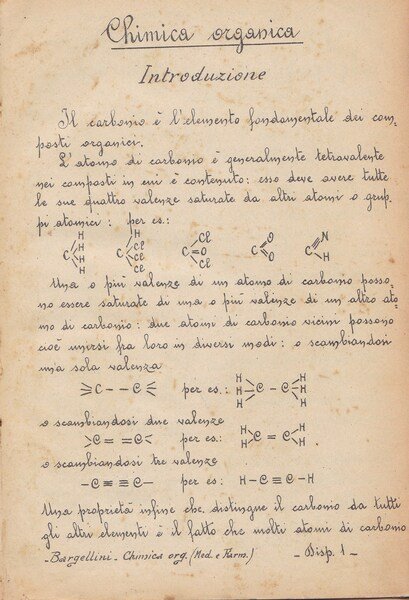 Chimica organica
Introduzione
Il carbonio è l'elemento fondamentale dei com-
posti organici.
L'atomo di carbonio è generalmente tetravalente
nei composti in cui è contenuto: esso deve avere tutte
le sue quattro valenze saturate da altri atomi o grup-
pi atomici: per es.:
C H H H H   C H Cl Cl Cl   C Cl O Cl   C O O   C N H
Una o più valenze di un atomo di carbonio posso-
no essere saturate di una o più valenze di un altro ato-
mo di carbonio: due atomi di carbonio vicini possono
cioè unirsi fra loro in diversi modi: o scambiandosi
una sola valenza
≥C - - C≤ per es.: H H H C - C H H H
o scambiandosi due valenze
>C = = C< per es.: H H C = C H H .
o scambiandosi tre valenze
-C≡ ≡C- per es: H-C≡C-H
Una proprietà infine che distingue il carbonio da tutti
gli altri elementi è il fatto che molti atomi di carbonio
- Bargellini - Chimica org. (Med. e Farm.) - Disp. 1 -